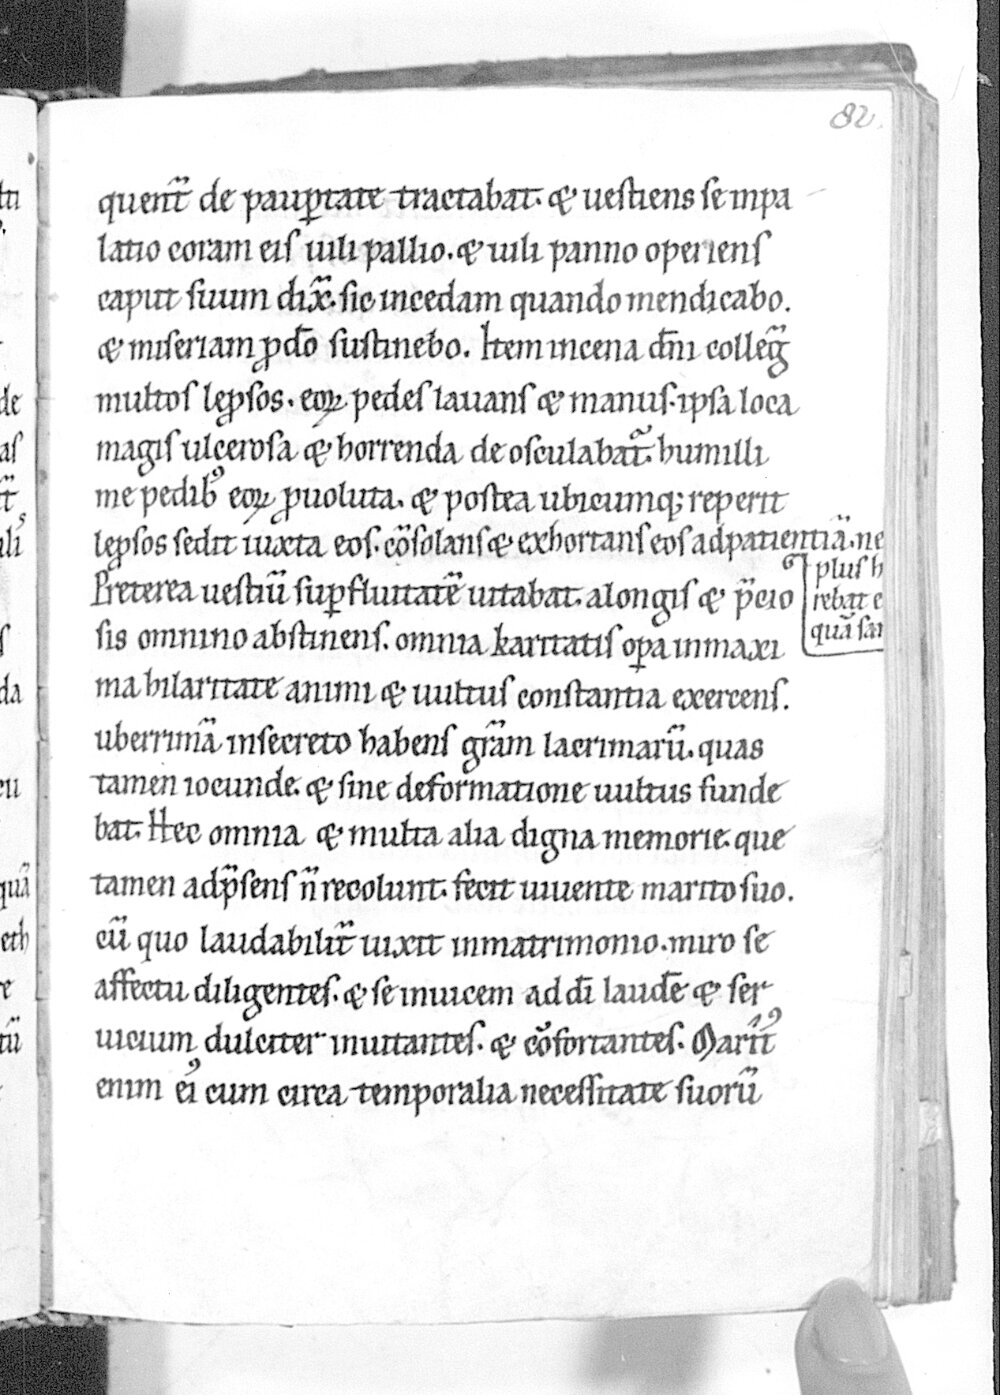 82.
quent̄ de paup̱tate tractabat. & uestiens se inpa
latio coram eis uili pallio. & uili panno operiens
caput suum dix̄. sic incedam quando mendicabo.
& miseriam ꝓ dō sustinebo. Item incena dn̄i colleḡ
multos lep̱sos. eoꝝ pedes lauans & manus. ipsa loca
magis ulcerosa & horrenda de osculabat᷑. humilli
me pedibꝰ eoꝝ ꝓuoluta. & postea ubicumq; reperit
lep̱sos sedit iuxta eos. cōsolans & exhortans eos adpatientiā. ne
plus h
Preterea uestiū suꝑfluitatē uitabat. alongis & p̄cio
rebat e
sis omnino abstinens. omnia karitatis oꝑa inmaxi
quā san
ma hilaritate animi & uultus constantia exercens.
uberrimā insecreto habens gr̄am lacrimarū. quas
tamen iocunde. & sine deformatione uultus funde
bat. Hec omnia & multa alia digna memorie. que
tamen adp̄sens n̄ recolunt. fecit uiuente marito suo.
cū quo laudabilit̄ uixit inmatrimonio. miro se
affectu diligentes. & se inuicem ad dī laudē & ser
uicium dulciter inuitantes. & cōfortantes. Marit̄ꝰ
enim eiꝰ cum circa temporalia necessitate suorū